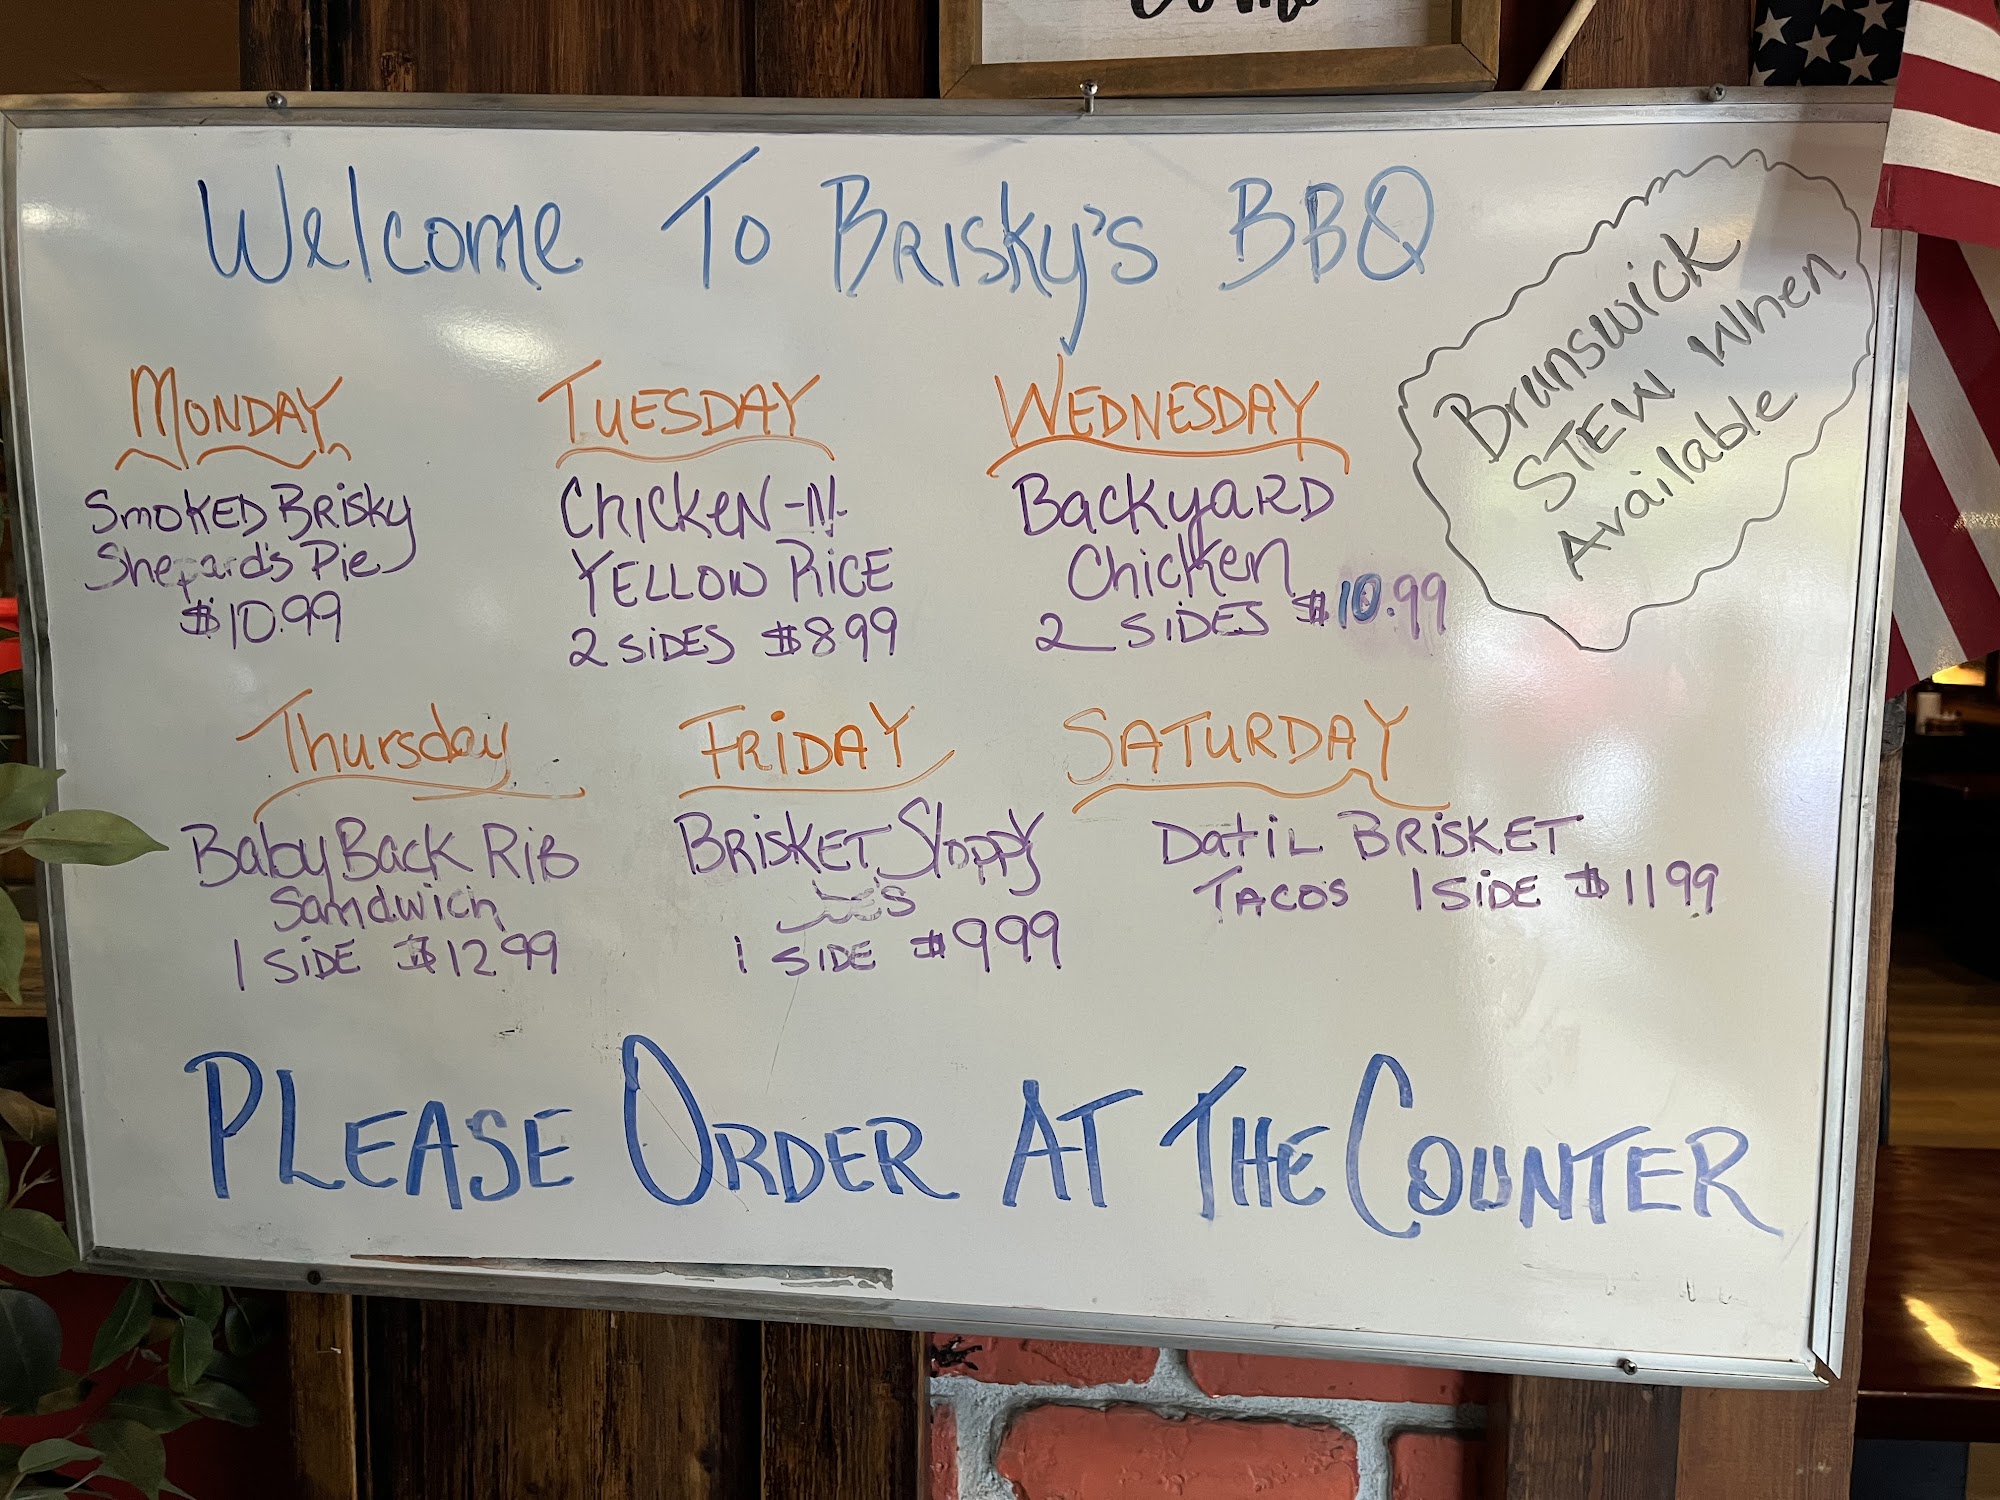 Welcome To BRISKY'S BBQ
Brunswick
STEW When
Available
MONDAY
SMOKED BRISKY
Shepard's Pie
$10.99
TUESDAY
CHICKEN-N-
YELLOW RICE
2 SIDES $8.99
WEDNESDAY
BackyARD
Chicken
2 SIDES $10.99
Thursday
Baby Back RIB
Sandwich
1 SIDE $12.99
FRIDAY
BRISKET Sloppy
Joe's
1 SIDE $9.99
SATURDAY
Datil BRISKET
TACOS 1 SIDE $11.99
PLEASE ORDER AT THE COUNTER